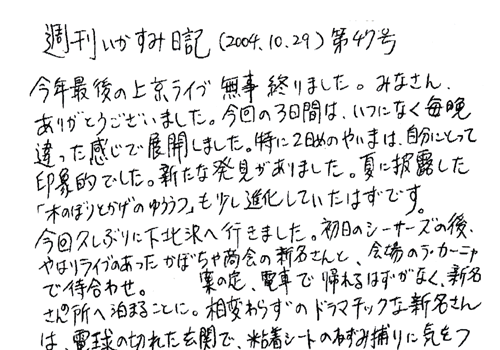 週刊いかすみ日記(2004.10.29)第47号
今年最後の上京ライブ無事終りました。みなさん、
ありがとうございました。今回の3日間は、いつになく毎晩
違った感じで展開しました。特に2日めのやいまは、自分にとって
印象的でした。新たな発見がありました。夏に披露した
「木のぼりとかげのゆううつ」も少し進化していたはずです。
今回久しぶりに下北沢へ行きました。初日のシーサーズの後、
やはりライブのあったかぼちゃ商会の新名さんと、会場のラ・カーニャ
で待合わせ。 案の定、電車で帰れるはずがなく、新名
さんの所へ泊まることに。相変わらずのドラマチックな新名さん
は、電球の切れた玄関で、粘着シートのねずみ捕りに気をつ